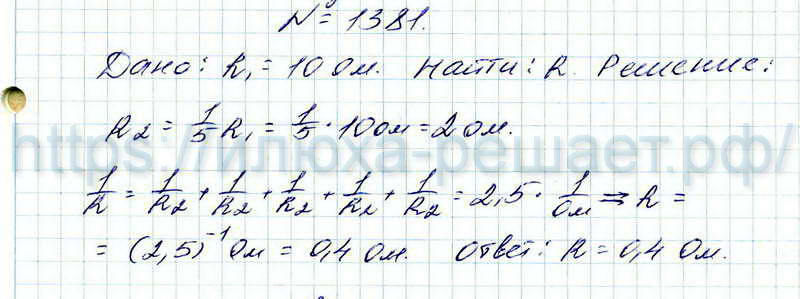 № 1381.
Дано: R₁ = 10 Ом. Найти: R. Решение:
R₂ = 1/5 R₁ = 1/5 · 10 Ом = 2 Ом.
https://илюха-решает.рф/
1/R = 1/R₂ + 1/R₂ + 1/R₂ + 1/R₂ + 1/R₂ = 2,5 · 1/Ом ⇒ R =
= (2,5)⁻¹ Ом = 0,4 Ом. Ответ: R = 0,4 Ом.